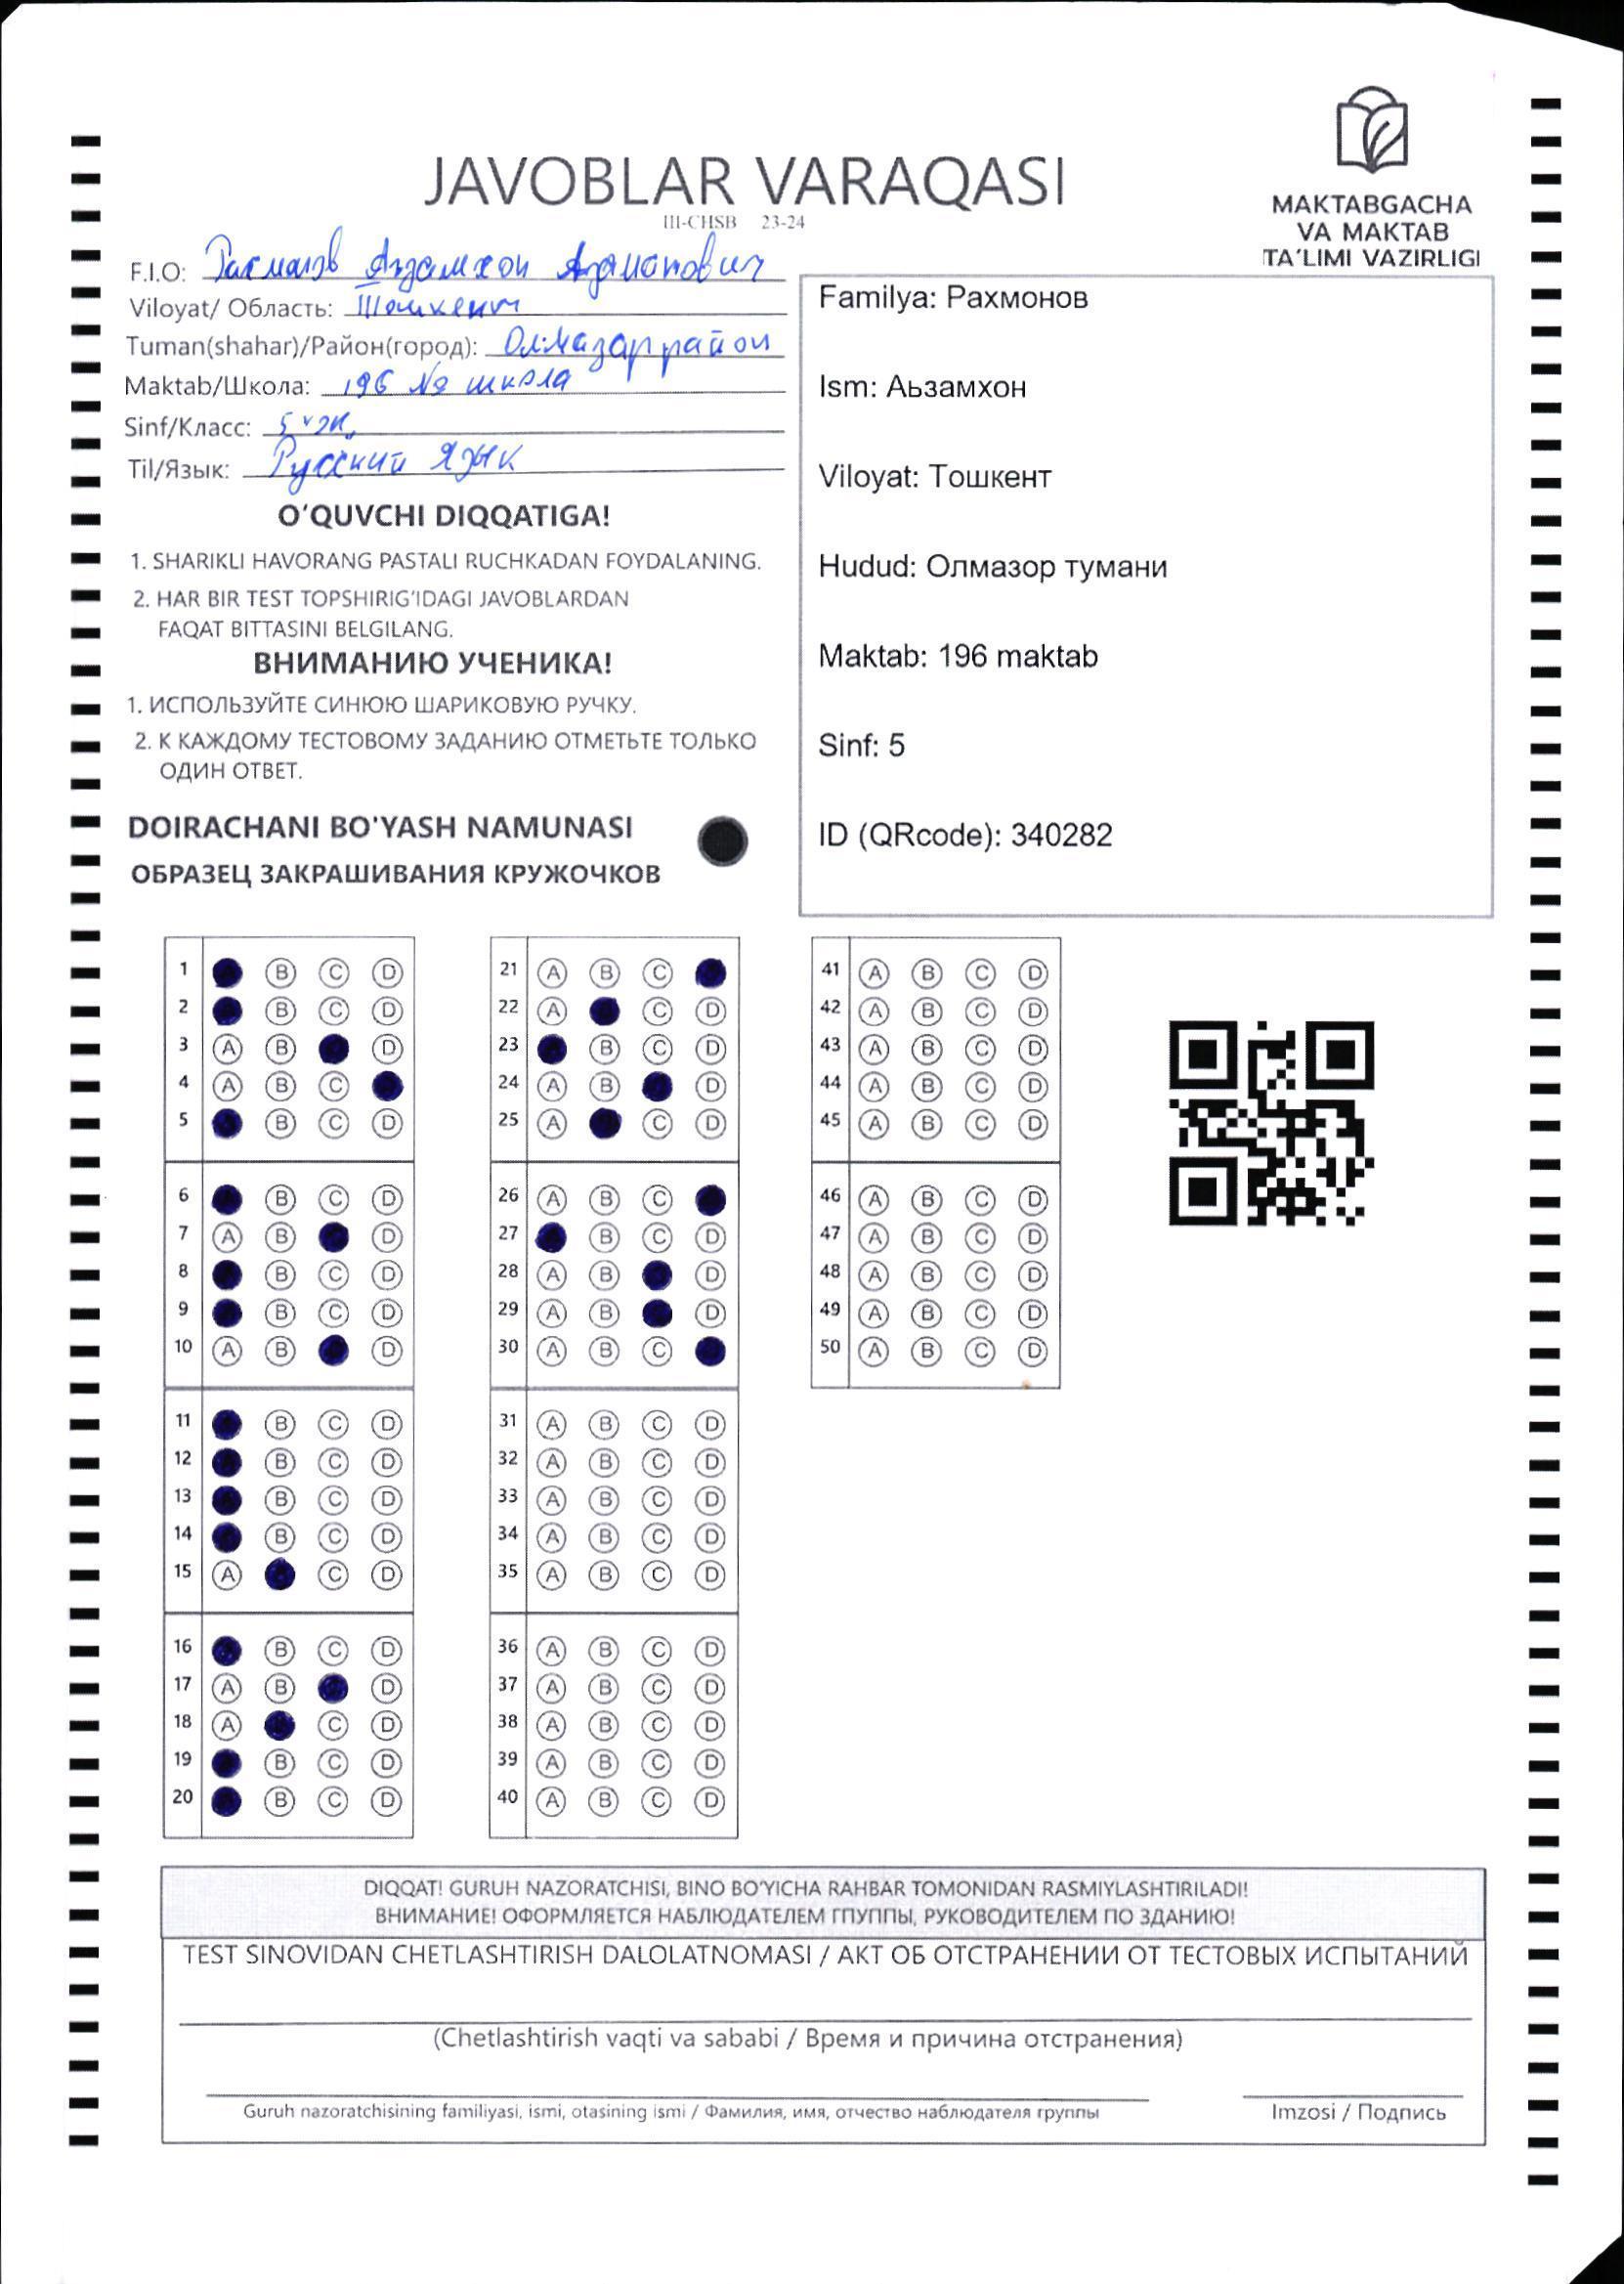 JAVOBLAR VARAQASI
III-CHSB 23-24
MAKTABGACHA
VA MAKTAB
TA'LIMI VAZIRLIGI
F.I.O:
Viloyat/ Область: Тошкент
Tuman(shahar)/Район(город): Олмазар район
Maktab/Школа: 196 № школа
Sinf/Класс: 5
Til/Язык: Русский язык
O'QUVCHI DIQQATIGA!
1. SHARIKLI HAVORANG PASTALI RUCHKADAN FOYDALANING.
2. HAR BIR TEST TOPSHIRIG'IDAGI JAVOBLARDAN
FAQAT BITTASINI BELGILANG.
ВНИМАНИЮ УЧЕНИКА!
1. ИСПОЛЬЗУЙТЕ СИНЮЮ ШАРИКОВУЮ РУЧКУ.
2. К КАЖДОМУ ТЕСТОВОМУ ЗАДАНИЮ ОТМЕТЬТЕ ТОЛЬКО
ОДИН ОТВЕТ.
DOIRACHANI BO'YASH NAMUNASI
ОБРАЗЕЦ ЗАКРАШИВАНИЯ КРУЖОЧКОВ
Familya: Рахмонов
Ism: Аьзамхон
Viloyat: Тошкент
Hudud: Олмазор тумани
Maktab: 196 maktab
Sinf: 5
ID (QRcode): 340282
1 B C D
2 B C D
3 A B D
4 A B C
5 B C D
6 B C D
7 A B D
8 B C D
9 B C D
10 A B D
11 B C D
12 B C D
13 B C D
14 B C D
15 A C D
16 B C D
17 A B D
18 A C D
19 B C D
20 B C D
21 A B C
22 A C D
23 B C D
24 A B D
25 A C D
26 A B C
27 B C D
28 A B D
29 A B D
30 A B C
31 A B C D
32 A B C D
33 A B C D
34 A B C D
35 A B C D
36 A B C D
37 A B C D
38 A B C D
39 A B C D
40 A B C D
41 A B C D
42 A B C D
43 A B C D
44 A B C D
45 A B C D
46 A B C D
47 A B C D
48 A B C D
49 A B C D
50 A B C D
DIQQAT! GURUH NAZORATCHISI, BINO BO'YICHA RAHBAR TOMONIDAN RASMIYLASHTIRILADI!
ВНИМАНИЕ! ОФОРМЛЯЕТСЯ НАБЛЮДАТЕЛЕМ ГПУППЫ, РУКОВОДИТЕЛЕМ ПО ЗДАНИЮ!
TEST SINOVIDAN CHETLASHTIRISH DALOLATNOMASI / АКТ ОБ ОТСТРАНЕНИИ ОТ ТЕСТОВЫХ ИСПЫТАНИЙ
(Chetlashtirish vaqti va sababi / Время и причина отстранения)
Guruh nazoratchisining familiyasi, ismi, otasining ismi / Фамилия, имя, отчество наблюдателя группы
Imzosi / Подпись